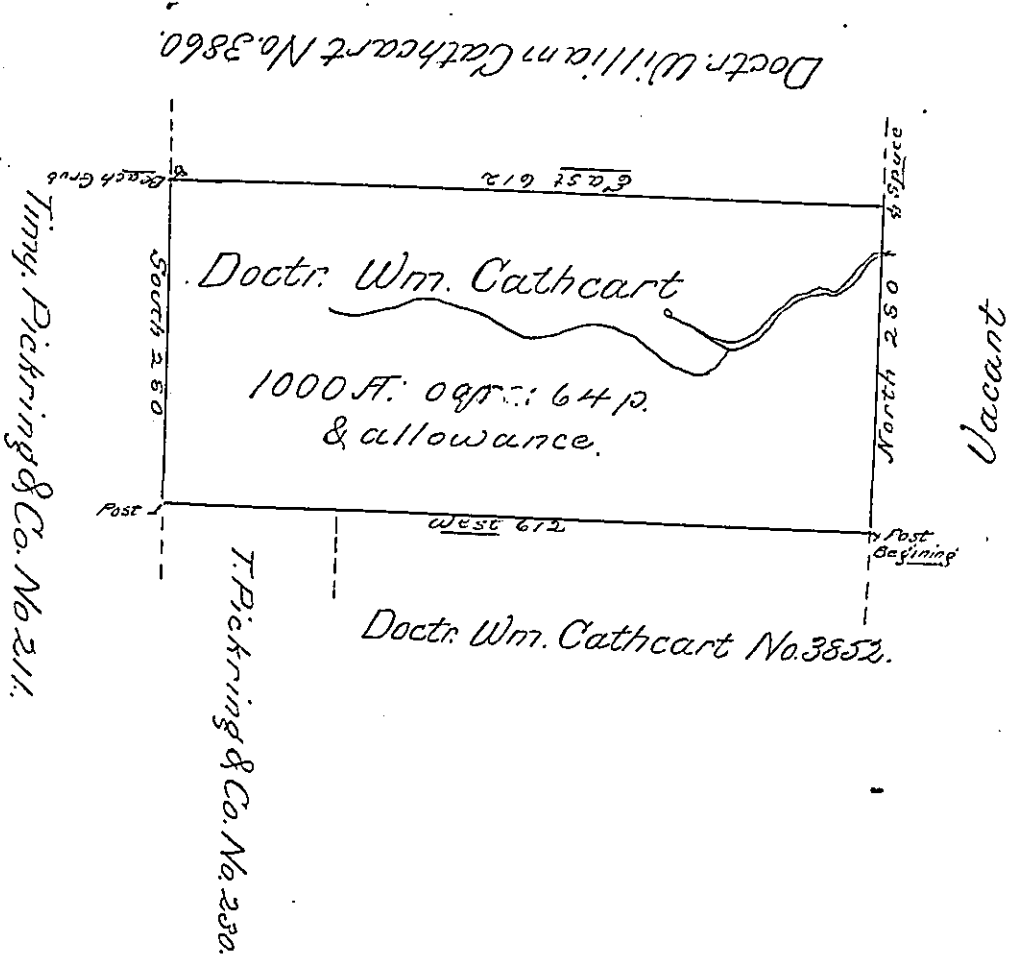 Doctr. William Cathcart No. 3860.
Beach Grub
East 612
4 Spuce
Timy. Pickring & Co. No 211.
South 280
Doctr. Wm. Cathcart
1000 A: 0qrs: 64 p.
& allowance.
North 280
Vacant
Post
West 612
Post
Begining
T. Pickring & Co. No. 230.
Doctr. Wm. Cathcart No. 3852.